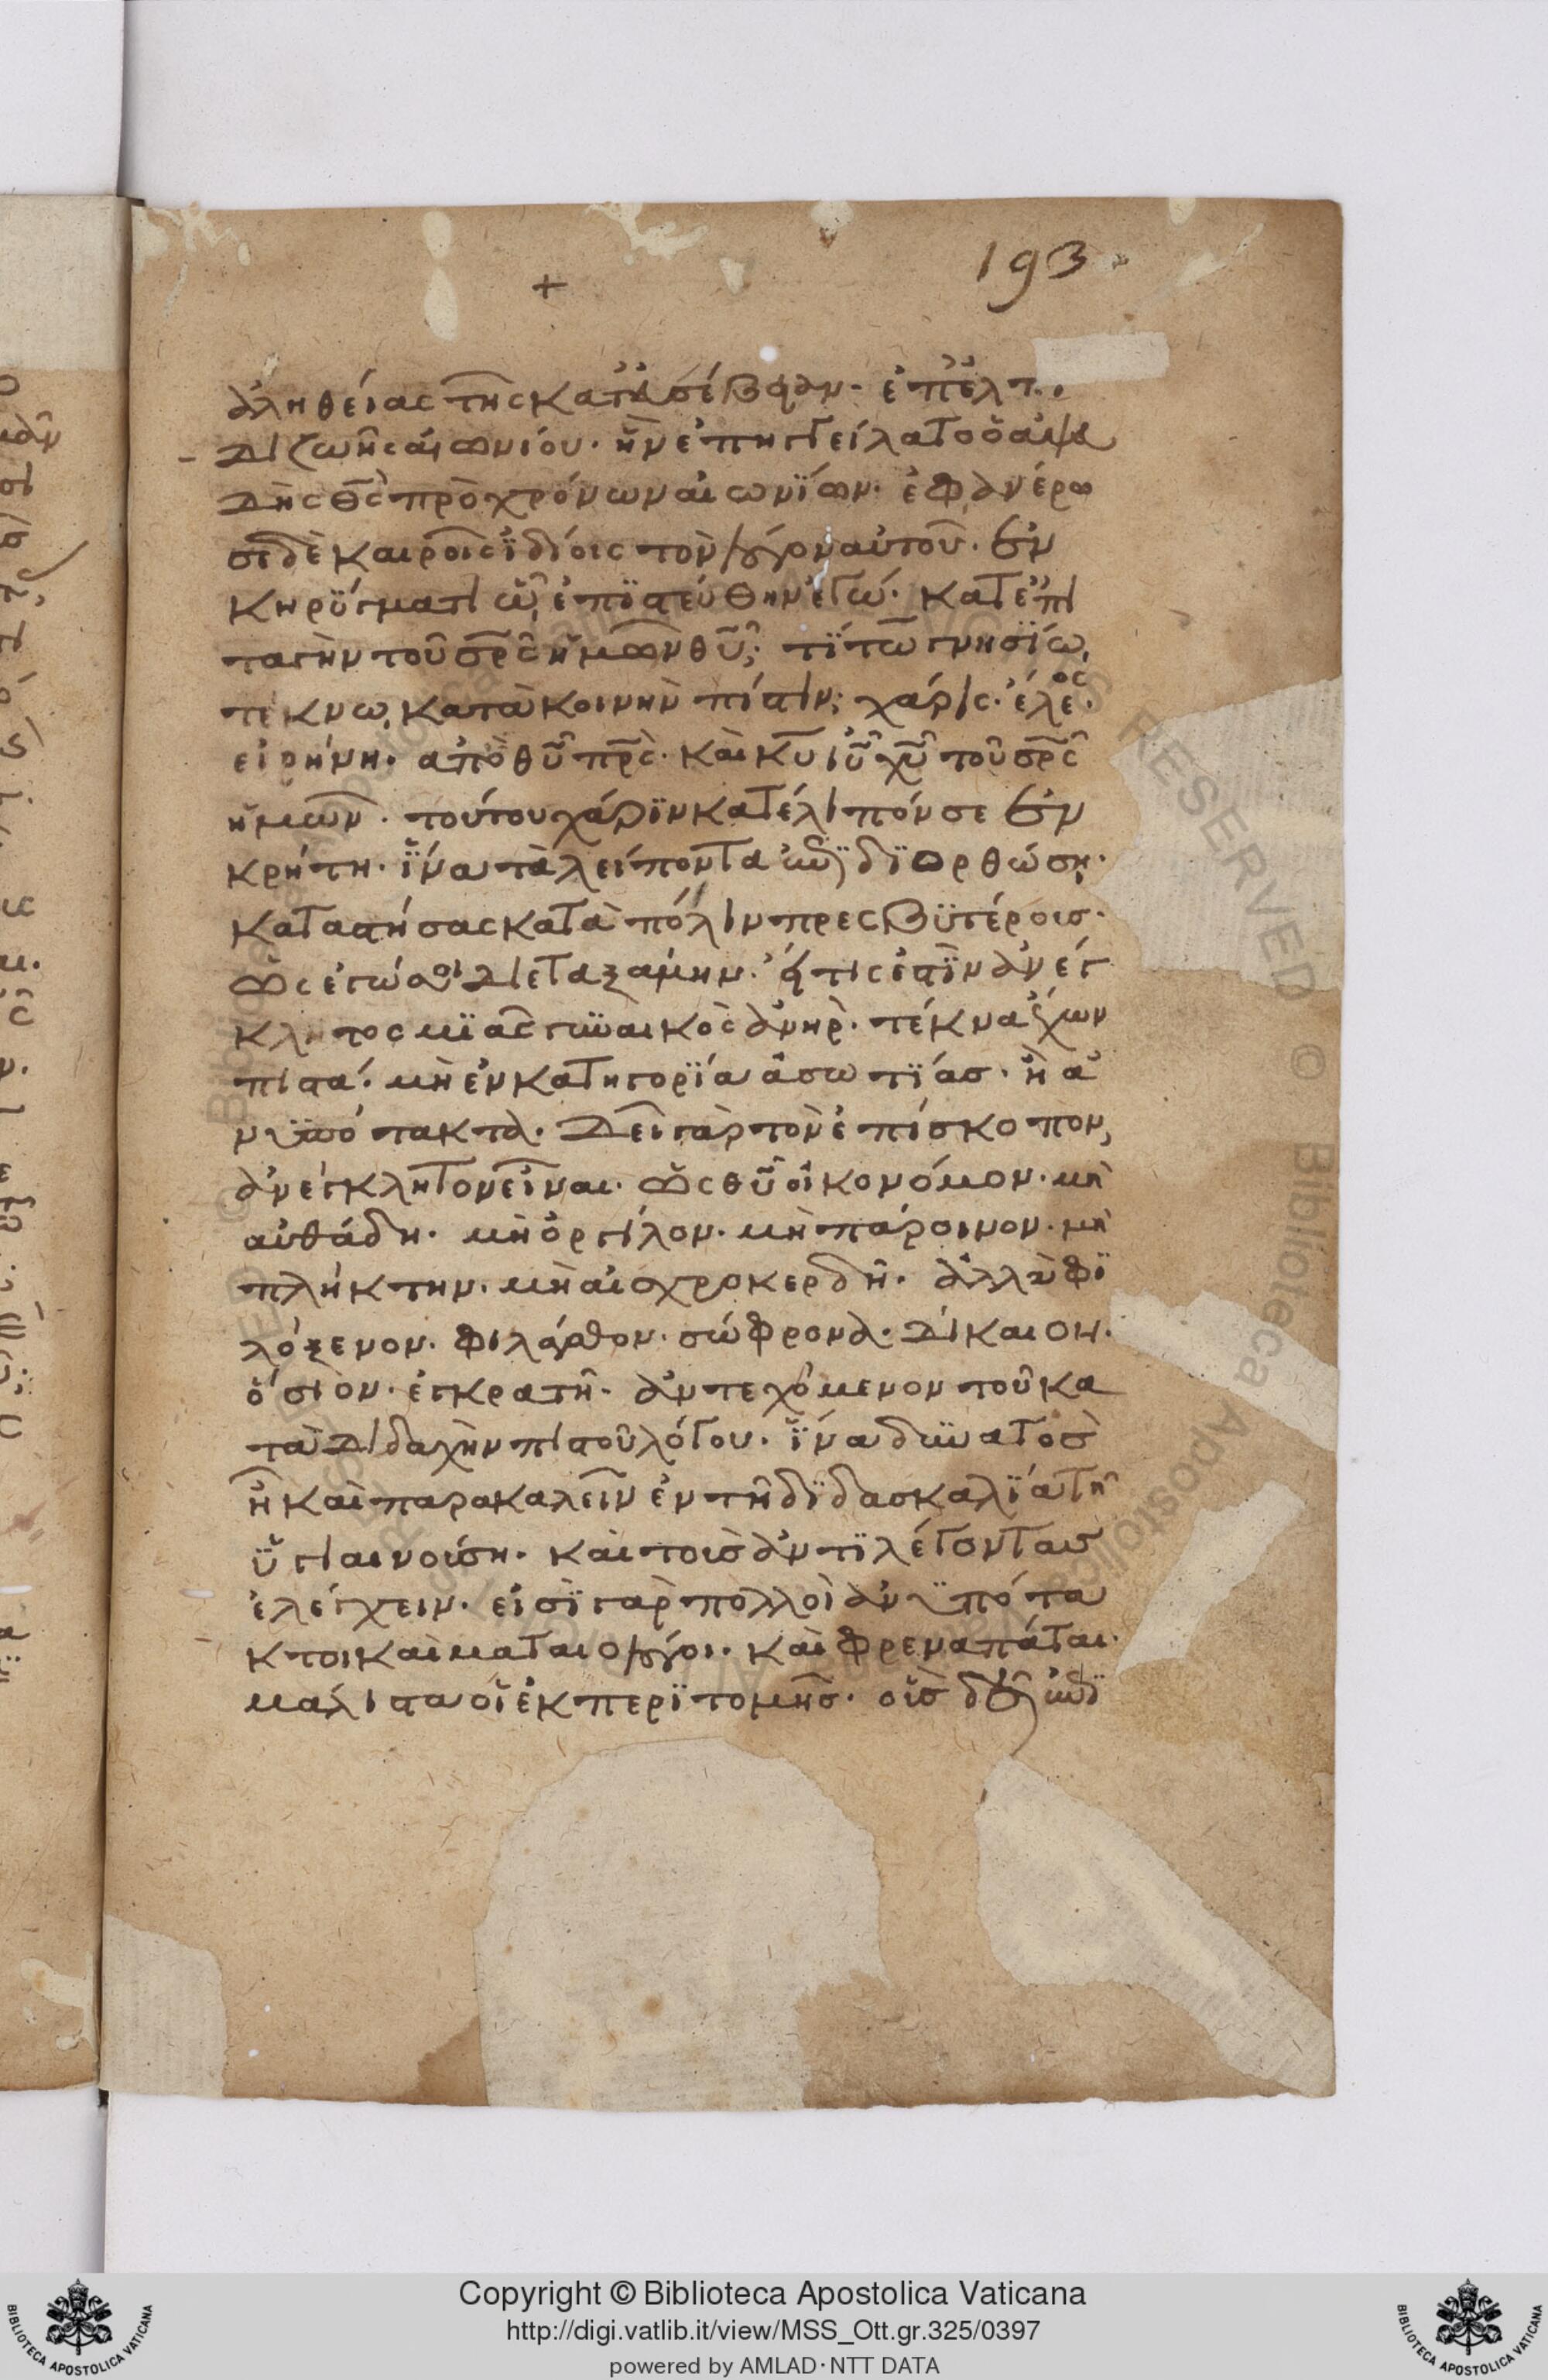 193
+
ἀληθείας τῆς κατ' εὐσέβειαν· ἐπ' ἐλπ
δι ζωῆς αἰωνίου· ἣν ἐπηγγείλατο ὁ ἀψευ
δὴς θς πρὸ χρόνων αἰωνίων· ἐφανέρω
σε δὲ καιροῖς ἰδίοις τὸν λόγον αὐτοῦ· ἐν
κηρύγματι ὧ, ἐπϊστεύθην ἐγώ· κατ' ἐπι
ταγὴν τοῦ σρς ἡμῶν θυ; τίτω γνησίω,
τέκνω, κατὰ κοινὴν πίστιν; χάρις· ἔλεος·
εἰρήνη· ἀπὸ θυ πρς· καὶ κυ ιυ χυ τοῦ σρς
ἡμῶν· τούτου χάρϊν κατέλιπόν σε ἐν
κρήτη· ἵνα τὰ λείποντα ἐπιδϊορθώση·
καταστήσας κατὰ πόλιν πρεσβϋτέρους·
ὡς ἐγώ σοι διεταξάμην· εἴ τις ἐστϊν ἀνέγ
κλητος μϊᾶς γυναικὸς ἀνήρ· τέκνα ἔχων
πιστά· μὴ ἐν κατηγορΐα ἀσωτΐας· ἢ ἀ
νϋπότακτα· δεῖ γὰρ τὸν ἐπίσκοπον,
ἀνέγκλητον εἶναι· ὡς θυ οἰκονόμον· μὴ
αὐθάδη· μὴ ὀργίλον· μὴ πάροινον· μὴ
πλήκτην· μὴ αἰσχροκερδῆ· ἀλλὰ φϊ
λόξενον· φιλάγαθον· σώφρονα· δίκαιον·
ὅσιον· ἐγκρατῆ· ἀντεχόμενον τοῦ κα
τὰ διδαχὴν πιστοῦ λόγου· ἵνα δυνατὸς
ἦ καὶ παρακαλεῖν ἐν τῆ δϊδασκαλΐα τῆ
ὑγιαινούση· καὶ τοὺς ἀντϊλέγοντας
ἐλέγχειν· εἰσῒ γὰρ πολλοὶ ἀνϋπότα
κτοι καὶ ματαιολόγοι· καὶ φρεναπάται·
μάλιστα οἱ ἐκ περϊτομῆς· οὓς δεῖ ἐπι
Copyright © Biblioteca Apostolica Vaticana
http://digi.vatlib.it/view/MSS_Ott.gr.325/0397
powered by AMLAD·NTT DATA